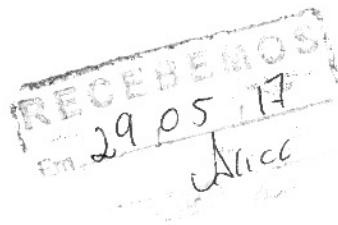 RECEBEMOS
Em 29 05 17
Alice